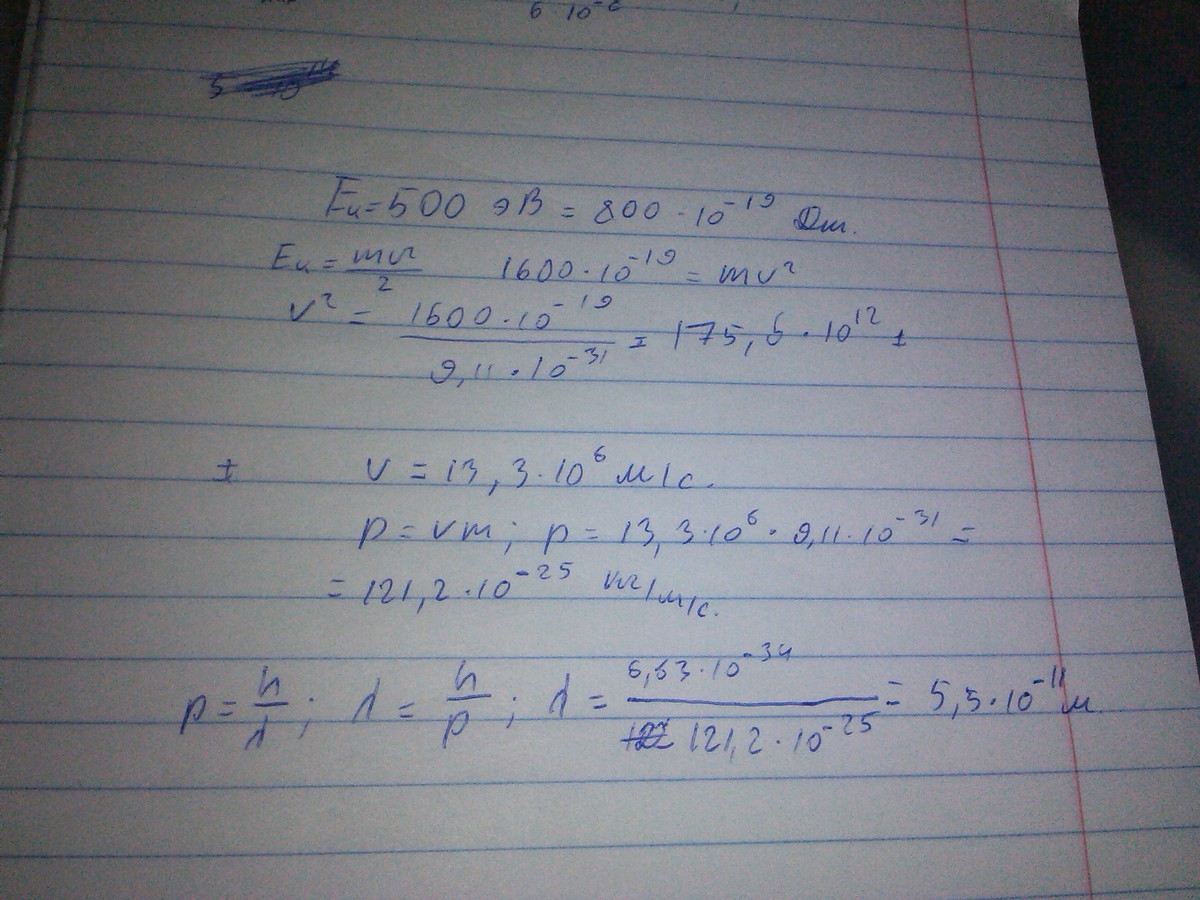 6 · 10⁻⁶
Eк = 500 эВ = 800 · 10⁻¹⁹ Дж.
Eк = mv²/2 1600 · 10⁻¹⁹ = mv²
v² = 1600 · 10⁻¹⁹ / 9,11 · 10⁻³¹ = 175,6 · 10¹²
v = 13,3 · 10⁶ м/с.
p = vm; p = 13,3 · 10⁶ · 9,11 · 10⁻³¹ =
= 121,2 · 10⁻²⁵ кг/м/с.
p = h/λ; λ = h/p; λ = 6,63 · 10⁻³⁴ / 121,2 · 10⁻²⁵ = 5,5 · 10⁻¹¹ м